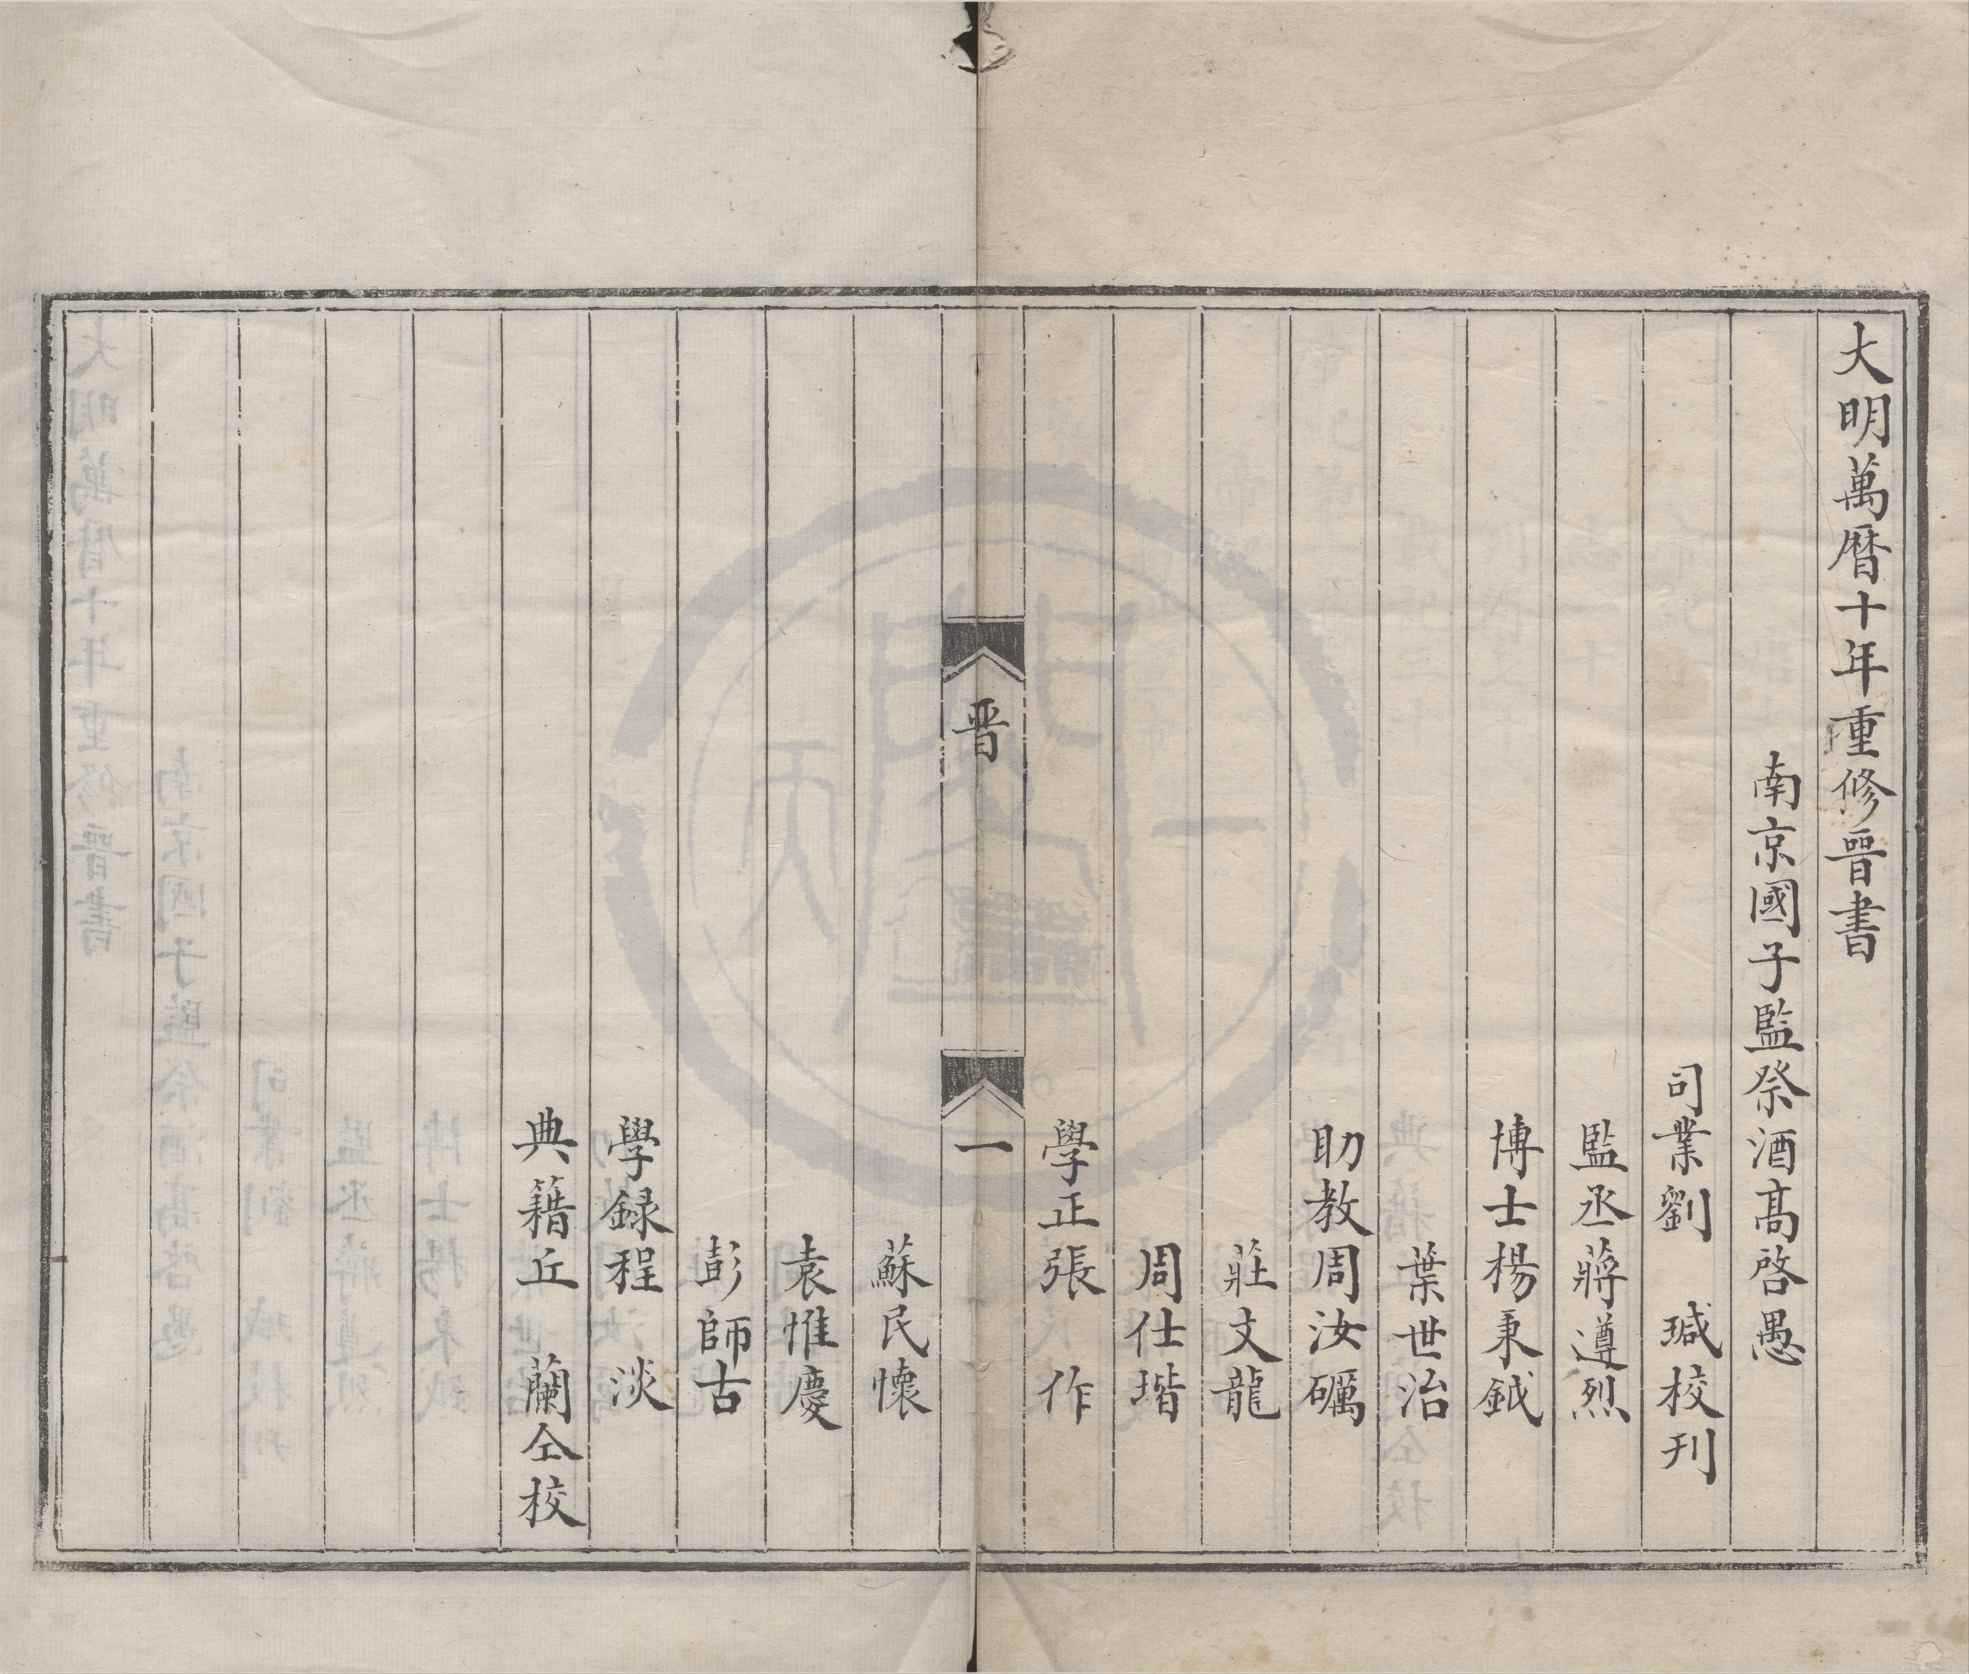 大明萬曆十年重修晉書
南京國子監祭酒高啓愚
司業劉 瑊校刊
監丞蔣遵烈
博士楊秉鉞
葉世治
助教周汝礪
莊文龍
周仕堦
學正張 作
晉 一
蘇民懷
袁惟慶
彭師古
學録程 淡
典籍丘 蘭仝校